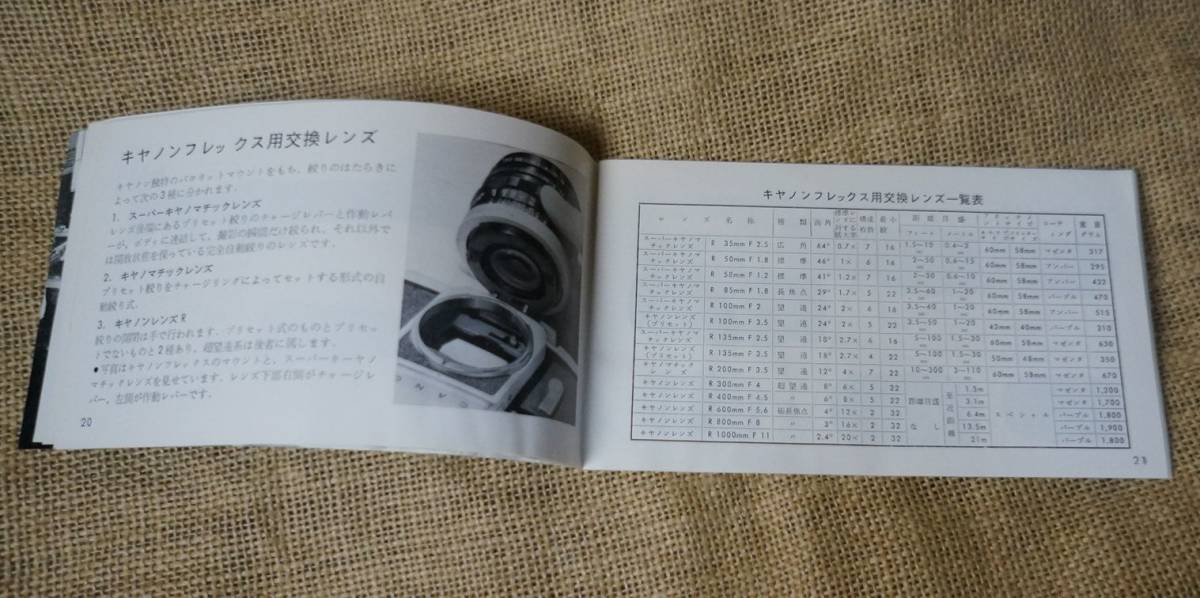 キヤノンフレックス用交換レンズ
キヤノン独特のバヨネットマウントをもち、絞りのはたらきに
よって次の3種に分かれます。
1. スーパーキヤノマチックレンズ
レンズ後部にあるプリセット絞りのチャージレバーと作動レバ
ーが、ボディに連結して、撮影の瞬間だけ絞られ、それ以外で
は開放状態を保っている完全自動絞りのレンズです。
2. キヤノマチックレンズ
プリセット絞りをチャージリングによってセットする形式の自
動絞り式。
3. キヤノンレンズR
絞りの開閉は手で行われます。プリセット式のものとプリセッ
トでないものと2種あり、超望遠系は後者に属します。
●写真はキヤノンフレックスのマウントと、スーパーキーヤノ
マチックレンズを見せています。レンズ下部右側がチャージレ
バー、左側が作動レバーです。
20
キヤノンフレックス用交換レンズ一覧表
レンズ名称 種類 画角 構成枚数 最小絞 距離目盛 フィート メートル コーチング 重量グラム
スーパーキヤノマチックレンズ R 35mm F 2.5 広角 64° 0.7× 7 16 60mm 58mm マゼンタ 317
スーパーキヤノマチックレンズ R 50mm F 1.8 標準 46° 1× 6 16 60mm 58mm アンバー 295
スーパーキヤノマチックレンズ R 50mm F 1.2 標準 41° 1.2× 7 16 60mm 58mm アンバー 422
スーパーキヤノマチックレンズ R 85mm F 1.8 長焦点 29° 1.7× 5 22 60mm 58mm パープル 470
スーパーキヤノマチックレンズ R 100mm F 2 望遠 24° 2× 6 16 60mm 58mm アンバー 515
キヤノンレンズ(プリセット) R 100mm F 3.5 望遠 24° 2× 5 22 42mm 40mm パープル 310
スーパーキヤノマチックレンズ R 135mm F 2.5 望遠 18° 2.7× 6 16 60mm 58mm マゼンタ 630
キヤノンレンズ(プリセット) R 135mm F 3.5 望遠 18° 2.7× 4 22 50mm 48mm マゼンタ 350
キヤノマチックレンズ R 200mm F 3.5 望遠 12° 4× 7 22 60mm 58mm マゼンタ 670
キヤノンレンズ R 300mm F 4 超望遠 8° 6× 5 22 距離目盛なし 至近距離 スペシャル マゼンタ 1,200
キヤノンレンズ R 400mm F 4.5 〃 6° 8× 5 22 3.1m マゼンタ 1,700
キヤノンレンズ R 600mm F 5.6 超長焦点 4° 12× 2 32 6.4m パープル 1,800
キヤノンレンズ R 800mm F 8 〃 3° 16× 2 32 13.5m パープル 1,900
キヤノンレンズ R 1000mm F 11 〃 2.4° 20× 2 32 21m パープル 1,800
21